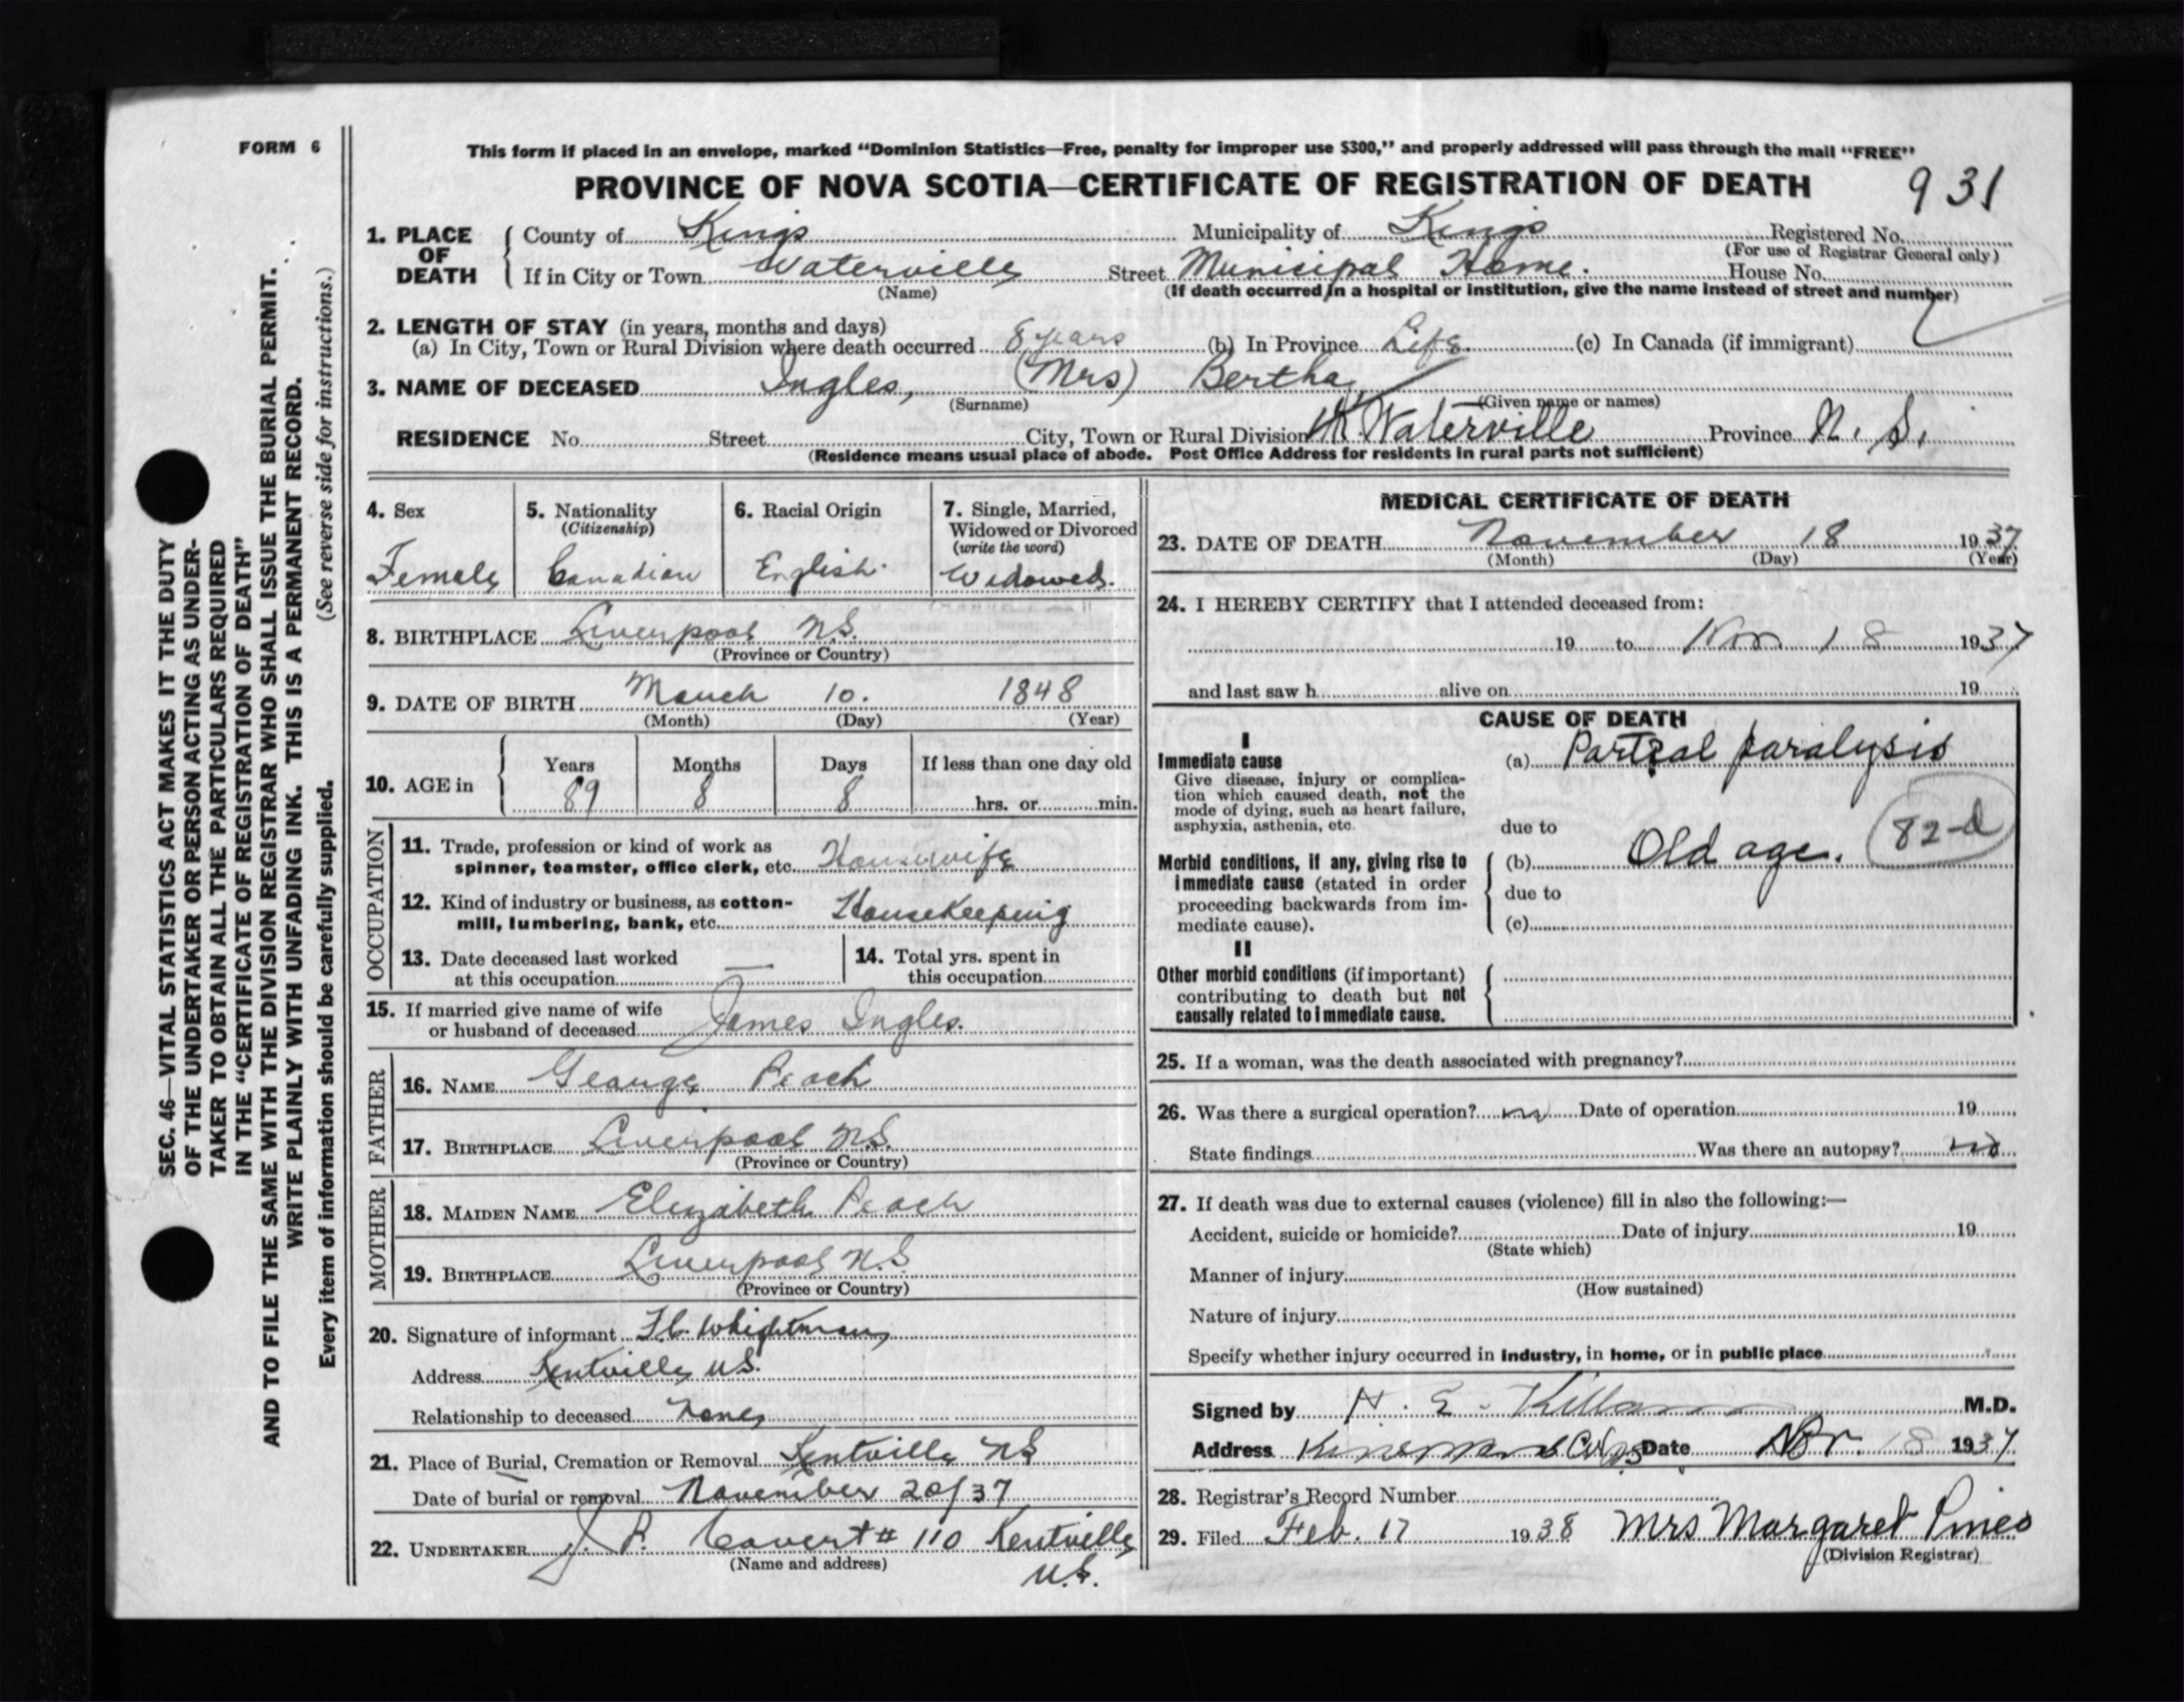 FORM 6
This form if placed in an envelope, marked “Dominion Statistics—Free, penalty for improper use $300,” and properly addressed will pass through the mail “FREE”
PROVINCE OF NOVA SCOTIA—CERTIFICATE OF REGISTRATION OF DEATH
931
1. PLACE OF DEATH { County of Kings Municipality of Kings Registered No.
(For use of Registrar General only)
If in City or Town Waterville Street Municipal Home. House No.
(Name) (If death occurred in a hospital or institution, give the name instead of street and number)
2. LENGTH OF STAY (in years, months and days)
(a) In City, Town or Rural Division where death occurred 8 years (b) In Province Life. (c) In Canada (if immigrant)
3. NAME OF DECEASED Ingles, (Mrs) Bertha
(Surname) (Given name or names)
RESIDENCE No. Street City, Town or Rural Division Waterville Province N. S.
(Residence means usual place of abode. Post Office Address for residents in rural parts not sufficient)
4. Sex
Female
5. Nationality
(Citizenship)
Canadian
6. Racial Origin
English.
7. Single, Married,
Widowed or Divorced
(write the word)
Widowed.
8. BIRTHPLACE Liverpool N.S.
(Province or Country)
9. DATE OF BIRTH March 10. 1848
(Month) (Day) (Year)
10. AGE in { Years Months Days If less than one day old
89 8 8 hrs. or min.
OCCUPATION
11. Trade, profession or kind of work as
spinner, teamster, office clerk, etc. Housewife
12. Kind of industry or business, as cotton-
mill, lumbering, bank, etc. HouseKeeping
13. Date deceased last worked
at this occupation —
14. Total yrs. spent in
this occupation
15. If married give name of wife
or husband of deceased James Ingles.
FATHER
16. NAME George Peach
17. BIRTHPLACE Liverpool N.S.
(Province or Country)
MOTHER
18. MAIDEN NAME Elizabeth Peach
19. BIRTHPLACE Liverpool N.S
(Province or Country)
20. Signature of informant Whightman
Address Kentville N.S.
Relationship to deceased None
21. Place of Burial, Cremation or Removal Kentville NS
Date of burial or removal November 20/37
22. UNDERTAKER J. P. Cavert # 110 Kentville
(Name and address)
N.S.
MEDICAL CERTIFICATE OF DEATH
23. DATE OF DEATH November 18 1937
(Month) (Day) (Year)
24. I HEREBY CERTIFY that I attended deceased from:
19 to Nov 18 1937
and last saw h alive on 19
CAUSE OF DEATH
I
Immediate cause
Give disease, injury or complica-
tion which caused death, not the
mode of dying, such as heart failure,
asphyxia, asthenia, etc.
(a) Partial paralysis
due to
82-d
Morbid conditions, if any, giving rise to
immediate cause (stated in order
proceeding backwards from im-
mediate cause).
(b) Old age.
due to
(c)
II
Other morbid conditions (if important)
contributing to death but not
causally related to immediate cause.
25. If a woman, was the death associated with pregnancy?
26. Was there a surgical operation? no Date of operation 19
State findings Was there an autopsy? no
27. If death was due to external causes (violence) fill in also the following:—
Accident, suicide or homicide? Date of injury 19
(State which)
Manner of injury
(How sustained)
Nature of injury
Specify whether injury occurred in industry, in home, or in public place
Signed by H. E. Killam M.D.
Address Date Nov. 18 1937
28. Registrar's Record Number
29. Filed Feb. 17 1938 Mrs Margaret Pineo
(Division Registrar)
SEC. 46—VITAL STATISTICS ACT MAKES IT THE DUTY
OF THE UNDERTAKER OR PERSON ACTING AS UNDER-
TAKER TO OBTAIN ALL THE PARTICULARS REQUIRED
IN THE “CERTIFICATE OF REGISTRATION OF DEATH”
AND TO FILE THE SAME WITH THE DIVISION REGISTRAR WHO SHALL ISSUE THE BURIAL PERMIT.
WRITE PLAINLY WITH UNFADING INK. THIS IS A PERMANENT RECORD.
Every item of information should be carefully supplied. (See reverse side for instructions.)